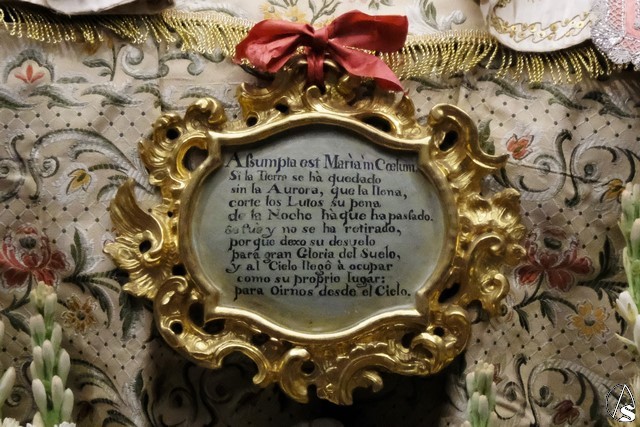 Aſsumpta est Maria in Cœlum.
Si la Tierra se hà quedado
sin la Aurora, que la llena,
corte los Lutos su pena
de la Noche hà que ha paſsado.
Se fue y no se ha retirado,
por que dexo su desvelo
parà gran Gloria del Suelo,
y al Cielo llegò à ocupar
como su proprio lugar;
para Oirnos desde el Cielo.